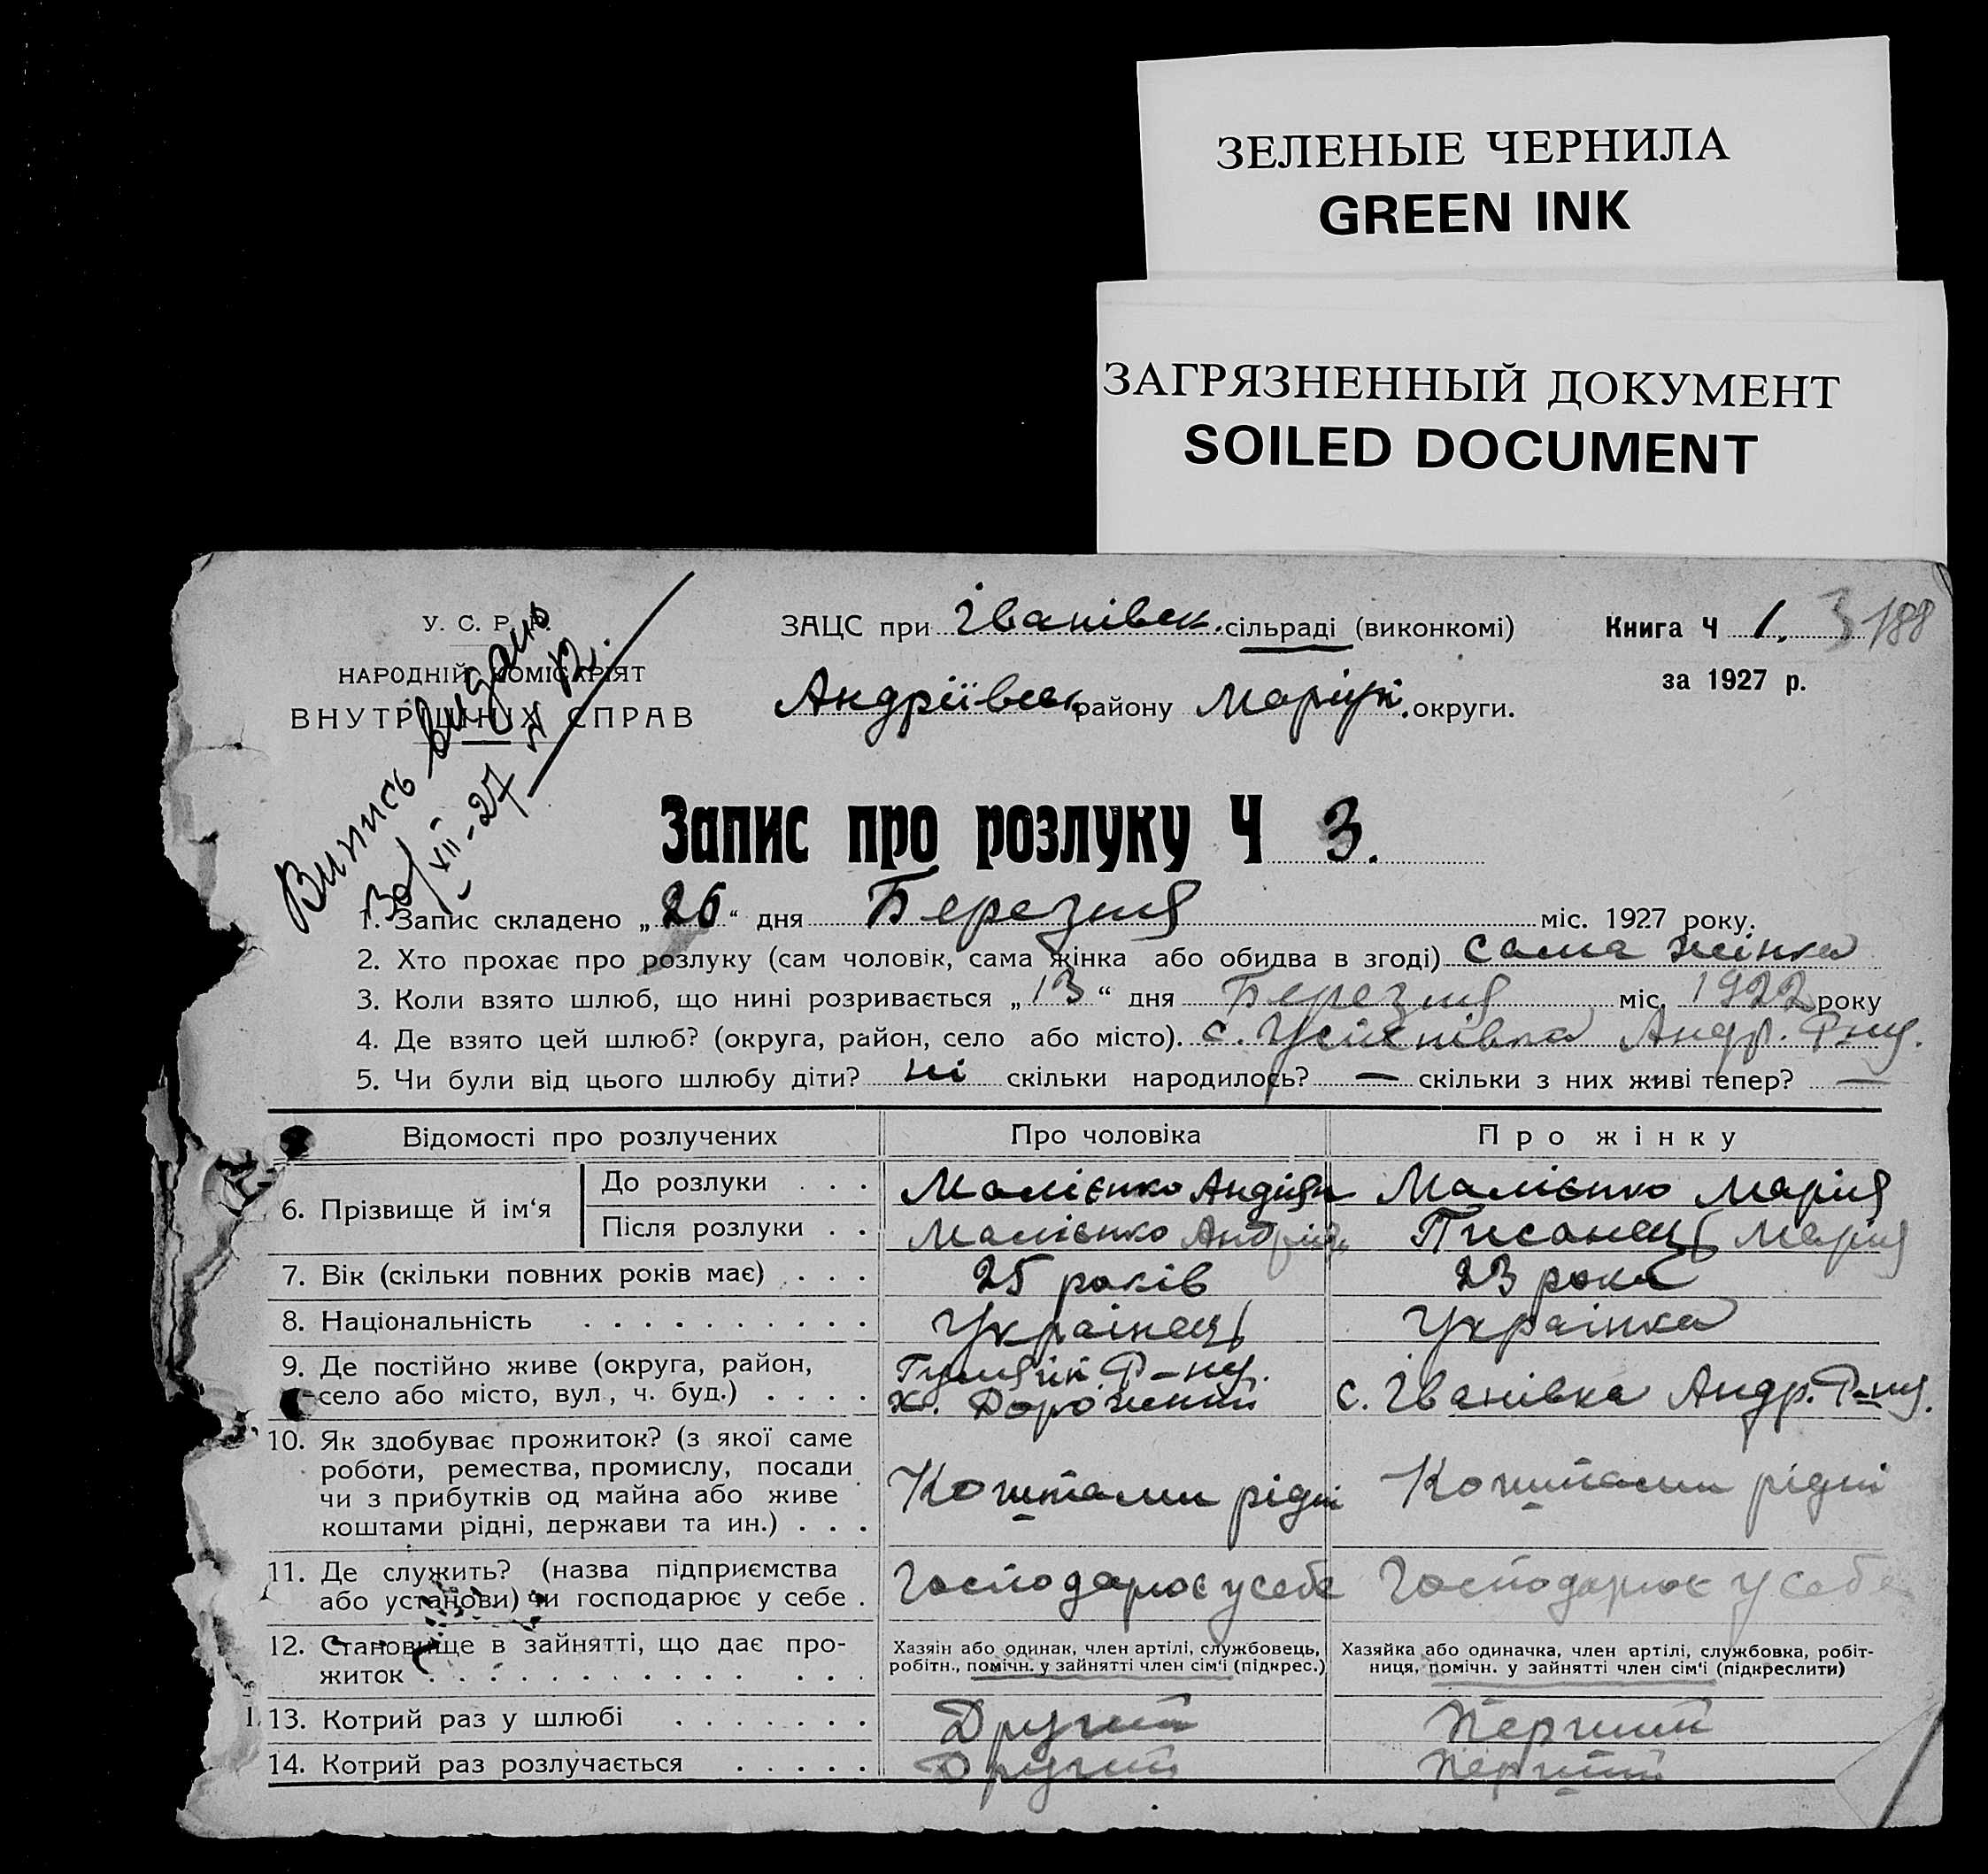 ЗЕЛЕНЫЕ ЧЕРНИЛА
GREEN INK
ЗАГРЯЗНЕННЫЙ ДОКУМЕНТ
SOILED DOCUMENT
У. С. Р. Р.
НАРОДНІЙ КОМІСАРІЯТ
ВНУТРІШНІХ СПРАВ
Випись видано
30/VII-27
ЗАЦС при Іванівськ. сільраді (виконкомі)
Андріївськ району Маріуп. округи.
Книга Ч 1. 3 188
за 1927 р.
Запис про розлуку Ч 3.
1. Запис складено „26“ дня Березня міс. 1927 року.
2. Хто прохає про розлуку (сам чоловік, сама жінка або обидва в згоді) сама жінка
3. Коли взято шлюб, що нині розривається „13“ дня Березня міс. 1922 року
4. Де взято цей шлюб? (округа, район, село або місто). с. Успенівка Андр. Р-ну.
5. Чи були від цього шлюбу діти? ні скільки народилось? — скільки з них живі тепер? —
Відомості про розлучених Про чоловіка Про жінку
6. Прізвище й ім‘я До розлуки . . . Малієнко Андрій Малієнко Марія
Після розлуки . . Малієнко Андрій Писанець Марія
7. Вік (скільки повних років має) . . . 25 років 23 рока
8. Національність . . . . . . . . . . Українець Українка
9. Де постійно живе (округа, район, село або місто, вул., ч. буд.) . . . .
Р-ну.
х. с. Іванівка Андр. Р-ну.
10. Як здобуває прожиток? (з якої саме
роботи, ремества, промислу, посади
чи з прибутків од майна або живе
коштами рідні, держави та ин.) . . .
Коштами рідні Коштами рідні
11. Де служить? (назва підприємства
або установи) чи господарює у себе .
Господарює у себе Господарює у себе
12. Становище в зайнятті, що дає про-
житок . . . . . . . . . . . . .
Хазяін або одинак, член артілі, службовець,
робітн., помічн. у зайнятті член сім‘ї (підкрес.)
Хазяйка або одиначка, член артілі, службовка, робіт-
ниця, помічн. у зайнятті член сім‘ї (підкреслити)
13. Котрий раз у шлюбі . . . . . . . Другий Перший
14. Котрий раз розлучається . . . . . Другий Перший